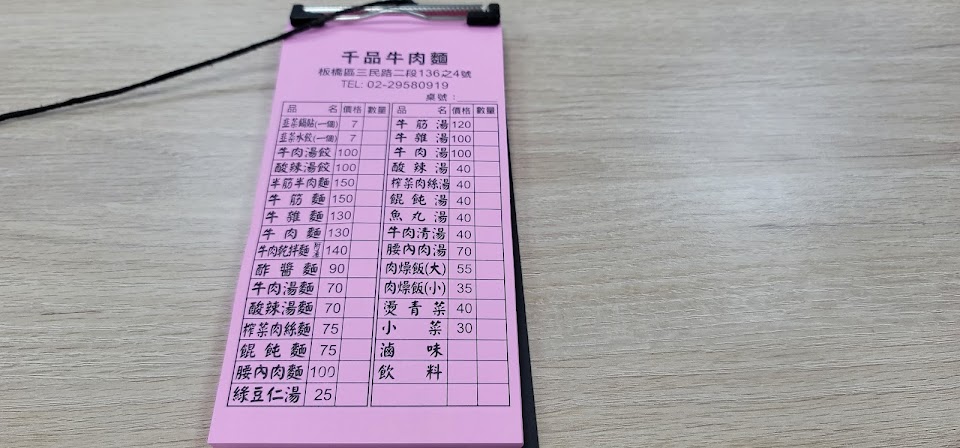 千品牛肉麵
板橋區三民路二段136之4號
TEL: 02-29580919
桌號:
品 名 價格 數量
韭菜鍋貼(一個) 7
韭菜水餃(一個) 7
牛肉湯餃 100
酸辣湯餃 100
半筋半肉麵 150
牛筋麵 150
牛雜麵 130
牛肉麵 130
牛肉乾拌麵 140
酢醬麵 90
牛肉湯麵 70
酸辣湯麵 70
榨菜肉絲麵 75
餛飩麵 75
腰內肉麵 100
綠豆仁湯 25
品 名 價格 數量
牛筋湯 120
牛雜湯 100
牛肉湯 100
酸辣湯 40
榨菜肉絲湯 40
餛飩湯 40
魚丸湯 40
牛肉清湯 40
腰內肉湯 70
肉燥飯(大) 55
肉燥飯(小) 35
燙青菜 40
小菜 30
滷味
飲料